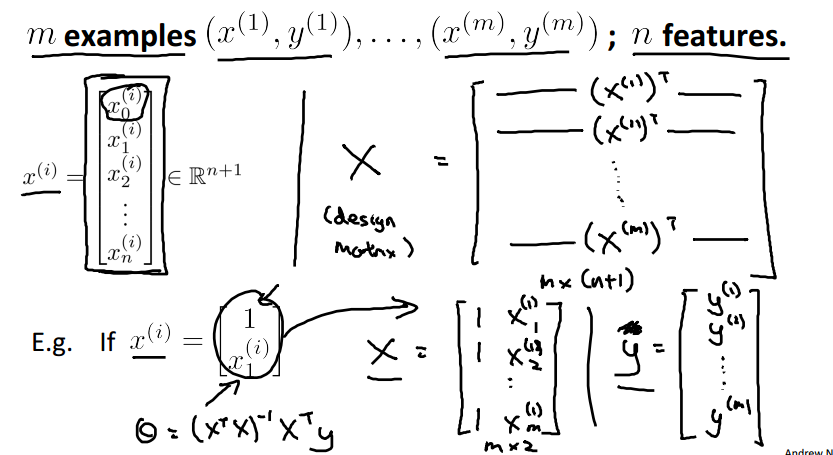 m examples (x^(1), y^(1)), . . . , (x^(m), y^(m)) ; n features.
x^(i) = [x_0^(i) x_1^(i) x_2^(i) ⋮ x_n^(i)] ∈ ℝ^(n+1)
X (design matrix) = [— (x^(1))^T — — (x^(2))^T — ⋮ — (x^(m))^T —]
m x (n+1)
E.g. If x^(i) = [1 x_1^(i)]
X = [1 x_1^(1) 1 x_2^(1) ⋮ 1 x_m^(1)]
m x 2
y = [y^(1) y^(2) ⋮ y^(m)]
Θ = (X^T X)^-1 X^T y
Andrew N